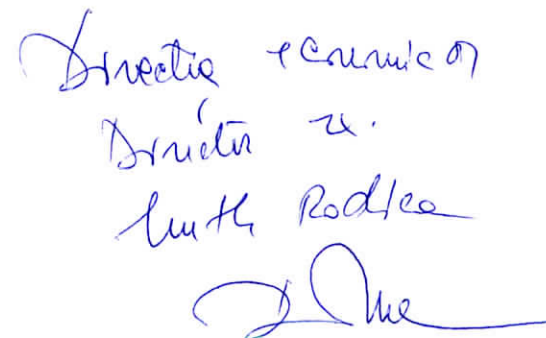 Direcția economică
Director ex.
Muth Rodica